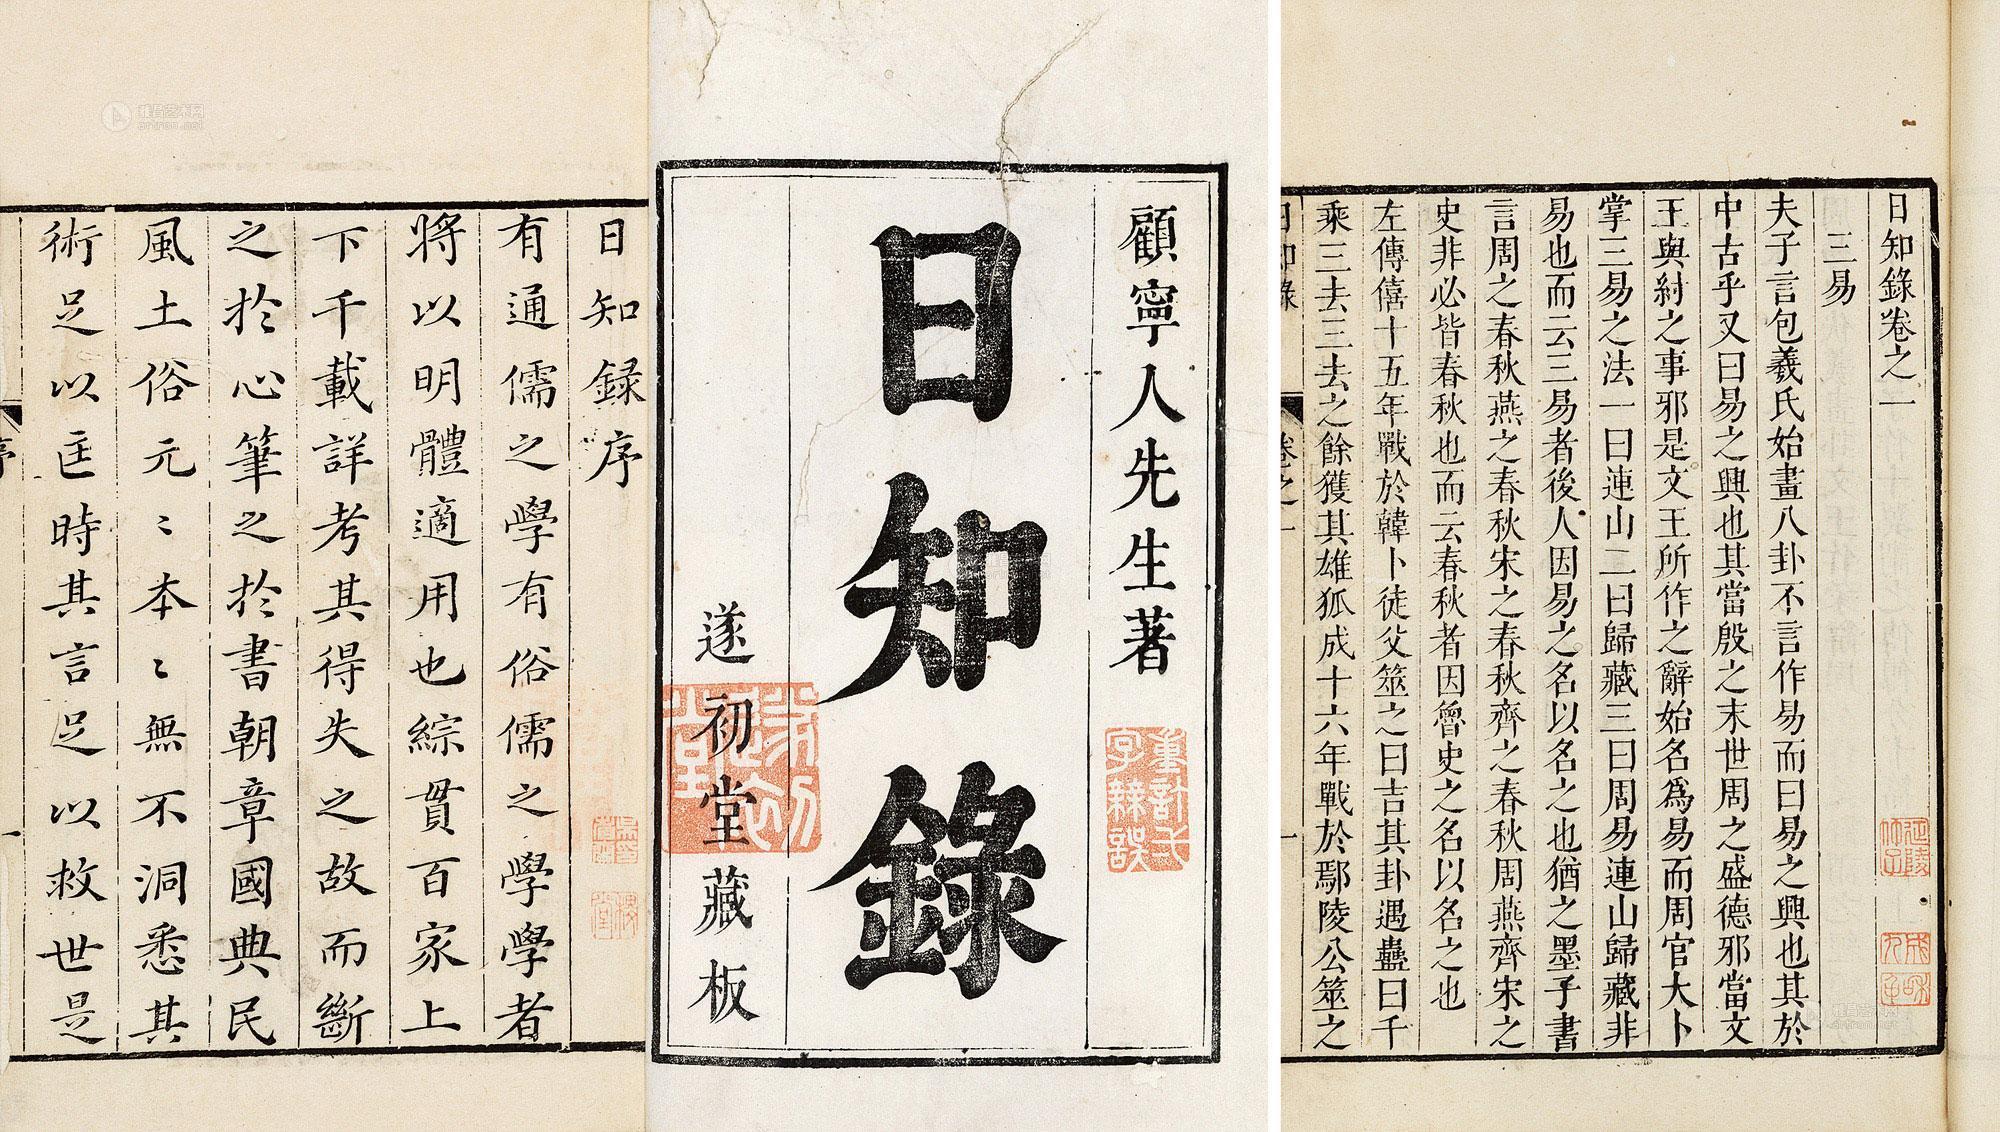 日知錄序
有通儒之學有俗儒之學學者
將以明體適用也綜貫百家上
下千載詳考其得失之故而斷
之於心筆之於書朝章國典民
風土俗元〻本〻無不洞悉其
術足以匡時其言足以救世是
序
一
顧寧人先生著
日知錄
遂初堂藏板
重訂正
字無誤
遂初堂
日知錄卷之一
三易
夫子言包羲氏始畫八卦不言作易而曰易之興也其於
中古乎又曰易之興也其當殷之末世周之盛德邪當文
王與紂之事邪是文王所作之辭始名為易而周官大卜
掌三易之法一曰連山二曰歸藏三曰周易連山歸藏非
易也而云三易者後人因易之名以名之也猶之墨子書
言周之春秋燕之春秋宋之春秋齊之春秋周燕齊宋之
史非必皆春秋也而云春秋者因魯史之名以名之也
左傳僖十五年戰於韓卜徒父筮之曰吉其卦遇蠱曰千
乘三去三去之餘獲其雄狐成十六年戰於鄢陵公筮之
日知錄
卷之一
一
雅昌艺术网
artron.net